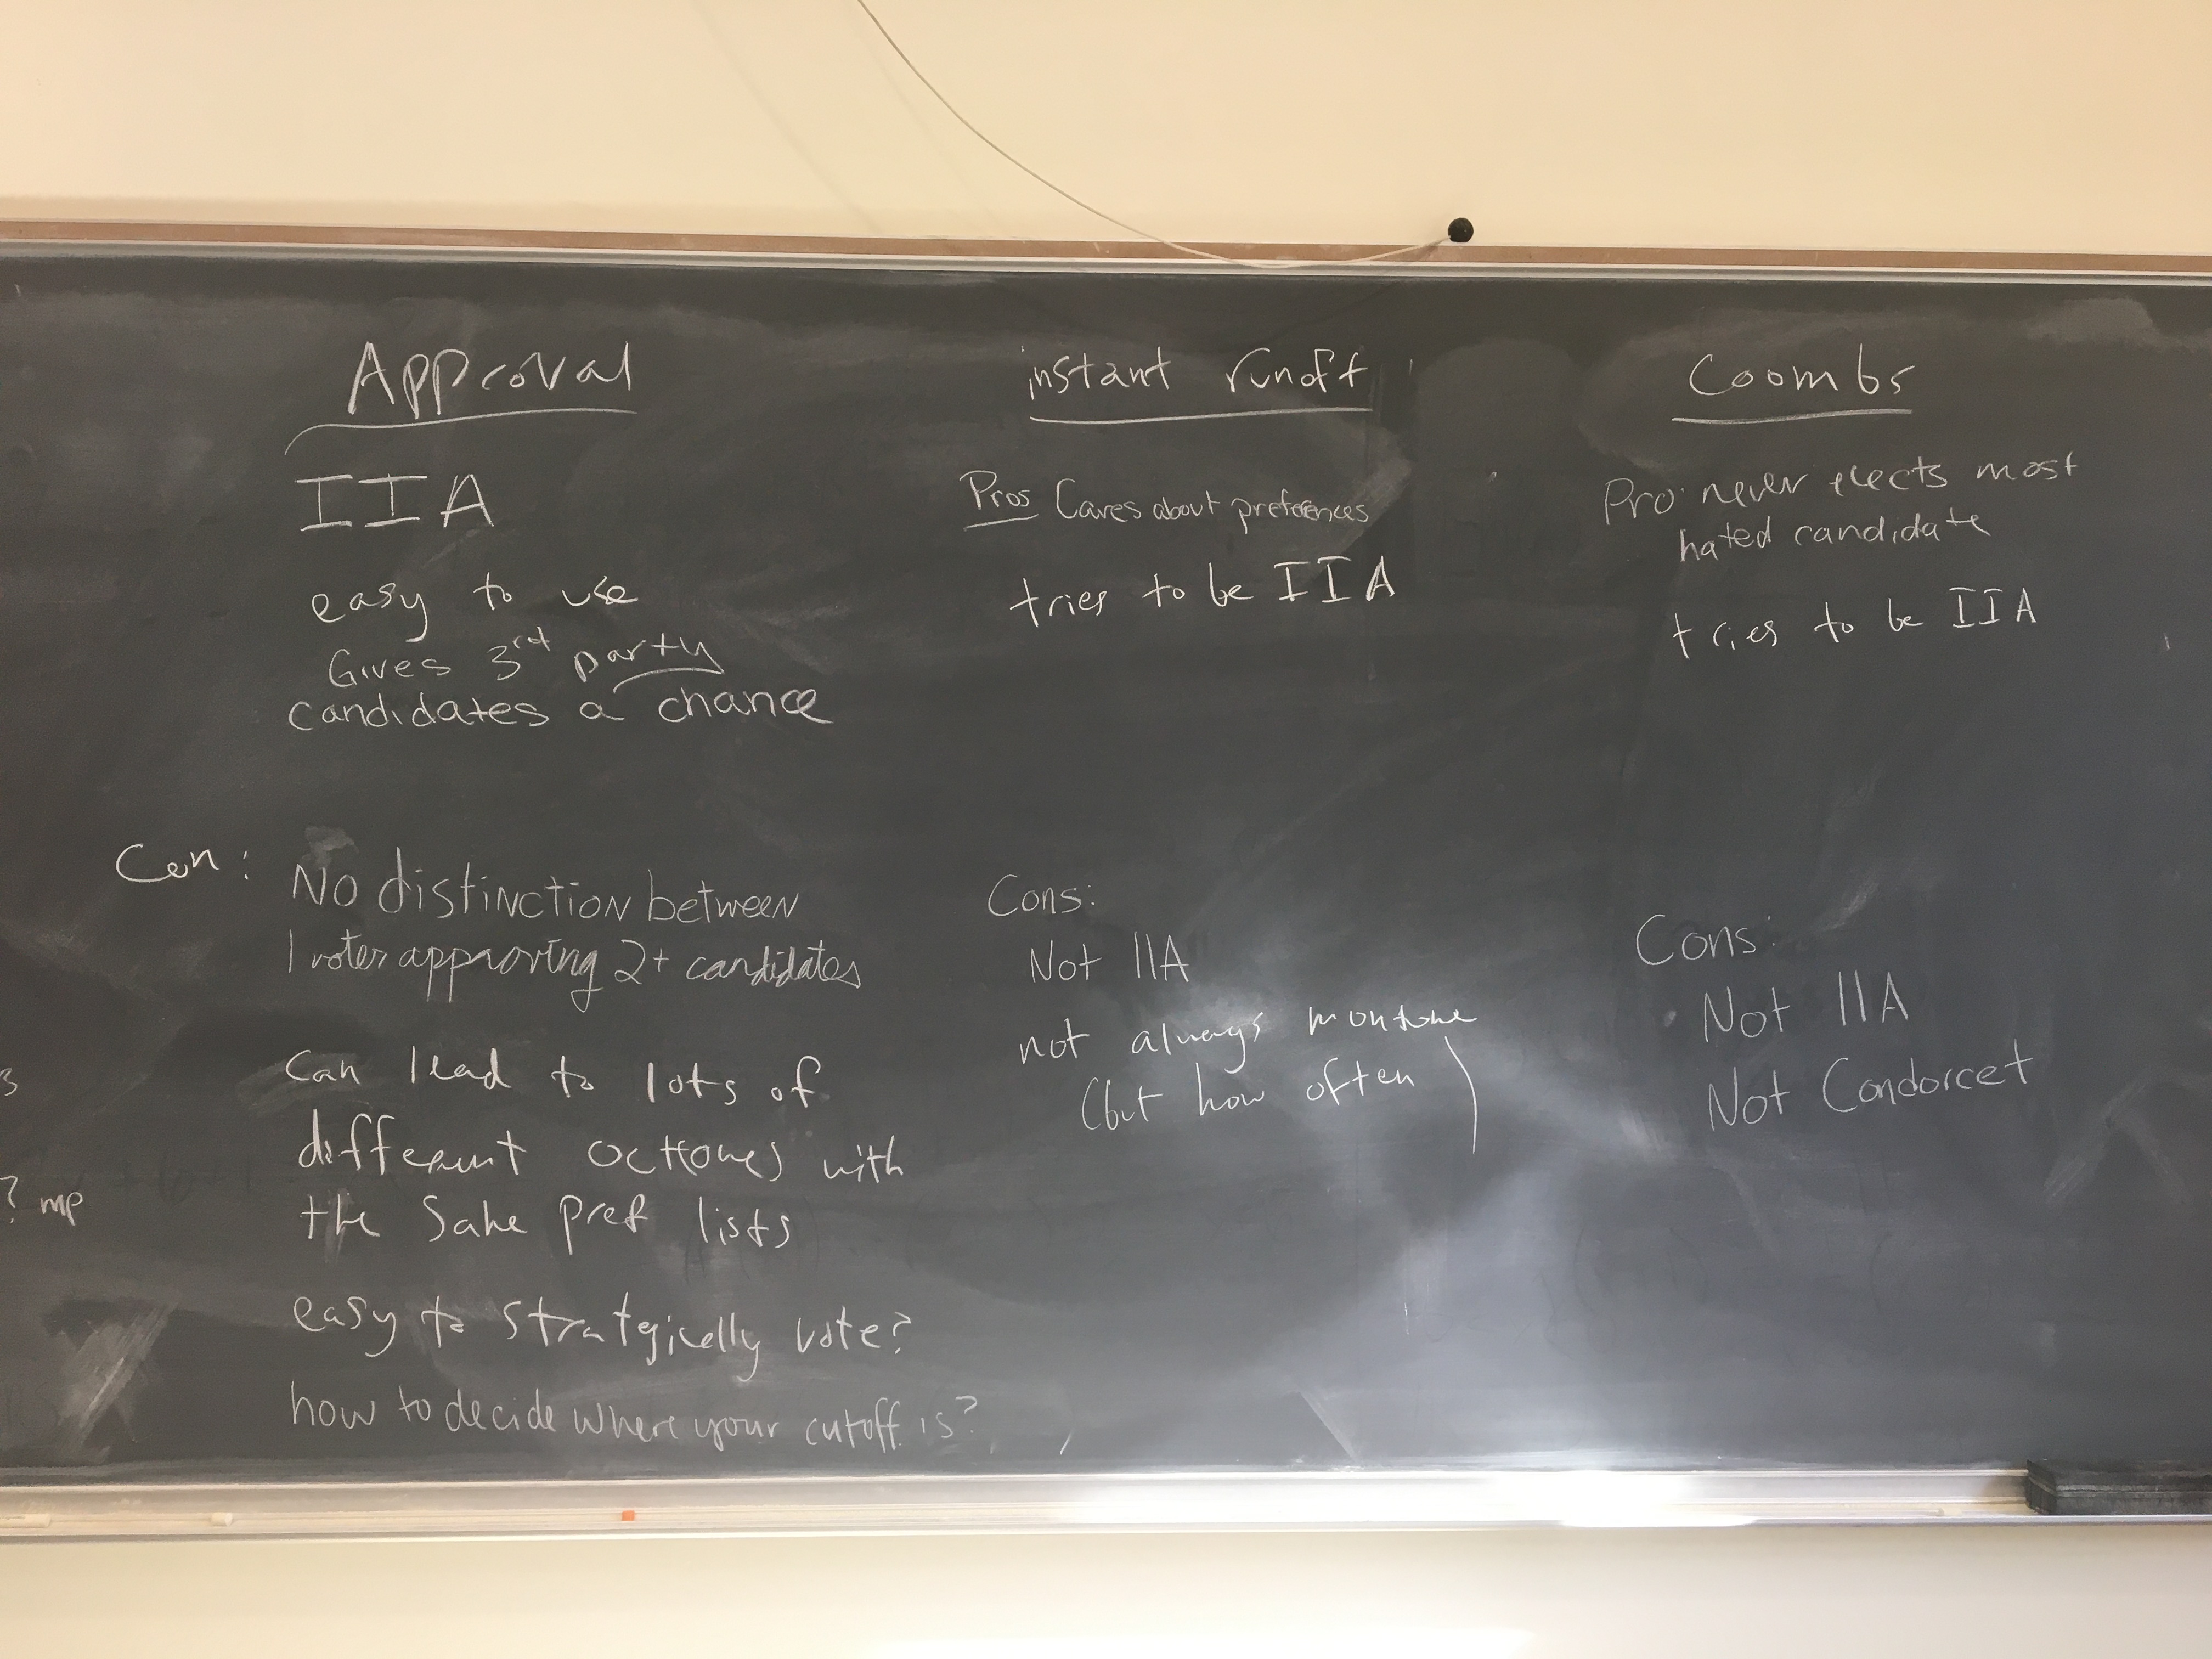 Approval
IIA
easy to use
Gives 3rd party
candidates a chance
Con:
No distinction between
1 voter approving 2+ candidates
Can lead to lots of
different octtomes with
the same pref lists
easy to strategically vote?
how to decide where your cutoff is?
instant runoff
Pros Cares about preferences
tries to be IIA
Cons:
Not IIA
not always montone
(but how often)
Coombs
Pro: never elects most
hated candidate
tries to be IIA
Cons:
Not IIA
Not Condorcet
s
? mp